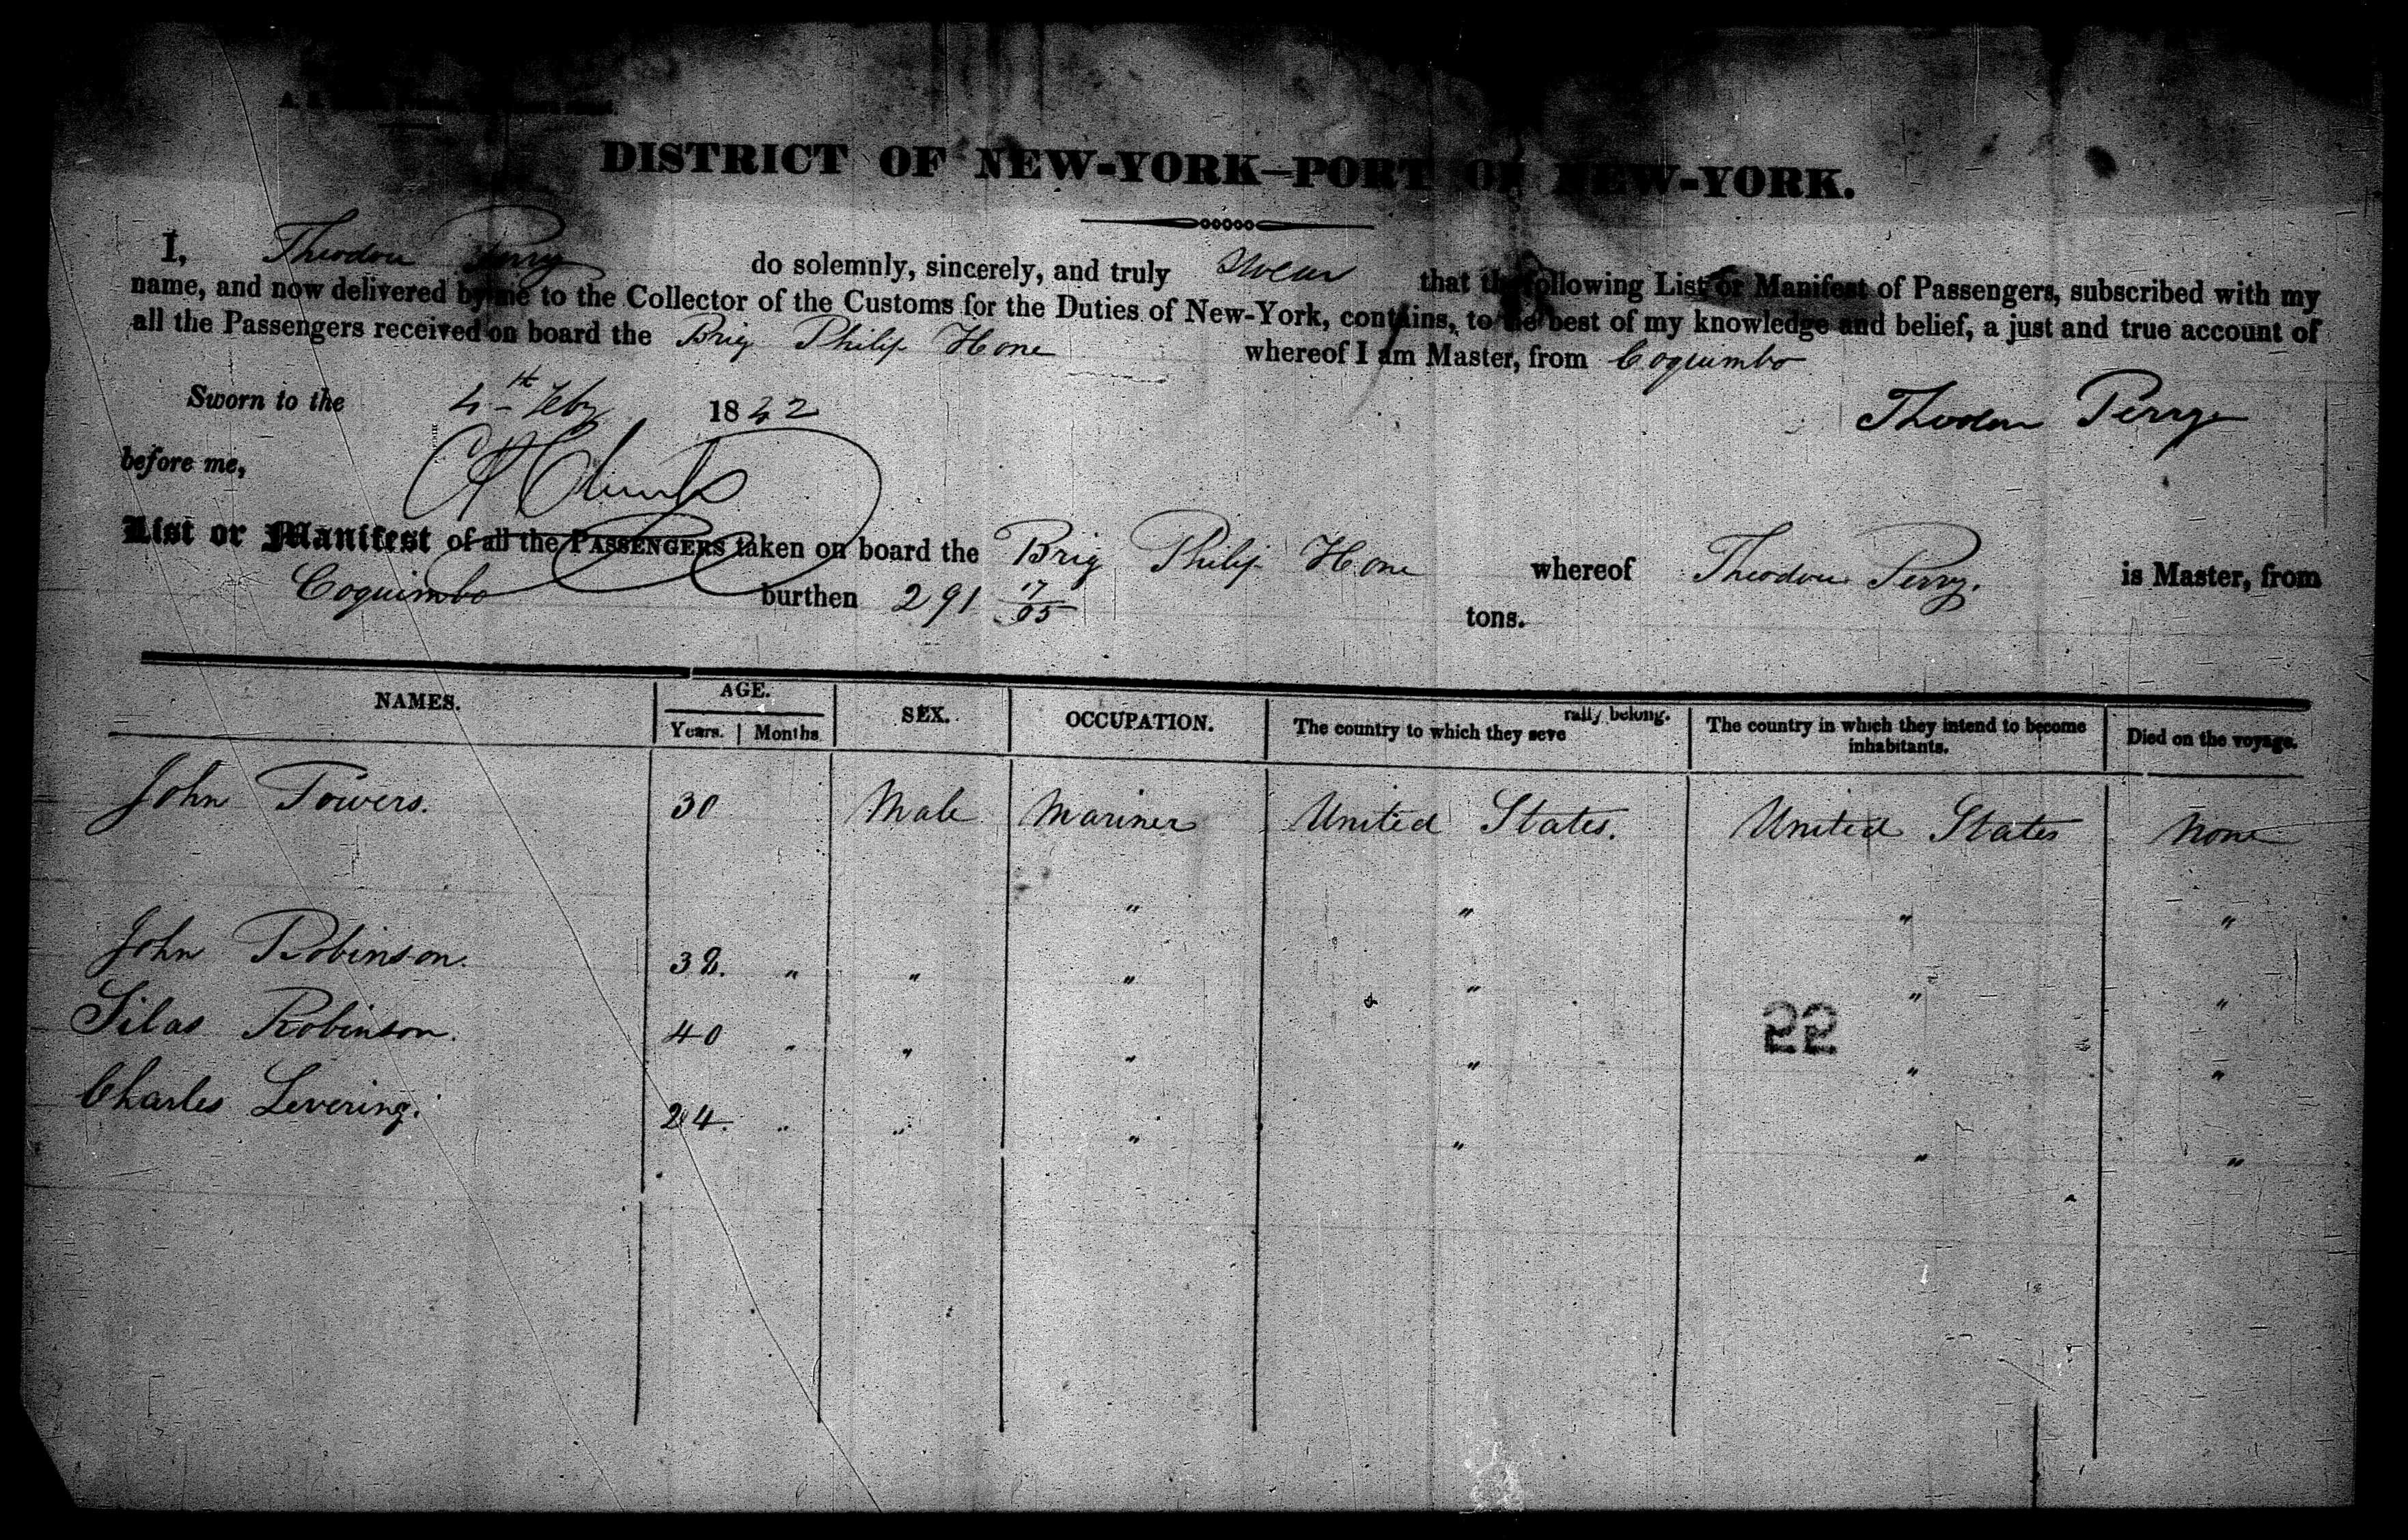 DISTRICT OF NEW-YORK—PORT OF NEW-YORK.
I, Theodore Perry do solemnly, sincerely, and truly swear that the following List or Manifest of Passengers, subscribed with my
name, and now delivered by me to the Collector of the Customs for the Duties of New-York, contains, to the best of my knowledge and belief, a just and true account of
all the Passengers received on board the Brig Philip Hone whereof I am Master, from Coquimbo
Sworn to the 4th Feby 1842
Theodore Perry
before me,
List or Manifest of all the PASSENGERS taken on board the Brig Philip Hone whereof Theodore Perry. is Master, from
Coquimbo burthen 291 17/95 tons.
NAMES. AGE. SEX. OCCUPATION. The country to which they severally belong. The country in which they intend to become inhabitants. Died on the voyage.
Years. Months
John Towers. 30 Male Mariner United States. United States None
" " " "
John Robinson. 32. " " " " " "
Silas Robinson. 40 " " " " " "
22
Charles Levering. 24. " " " " " "